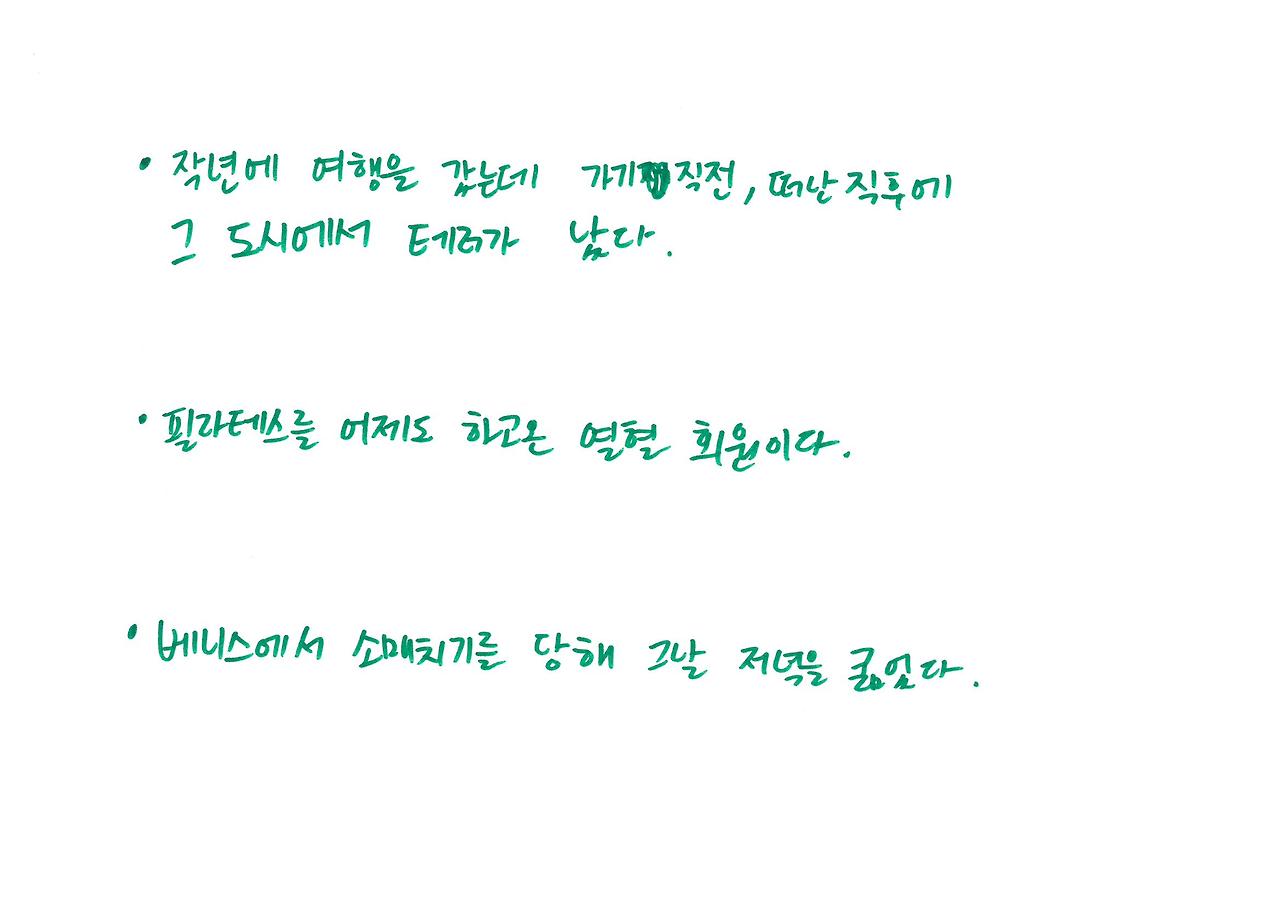 • 작년에 여행을 갔는데 가기 직전, 떠난 직후에
그 도시에서 테러가 났다.
• 필라테스를 어제도 하고온 열혈 회원이다.
• 베니스에서 소매치기를 당해 그날 저녁을 굶었다.